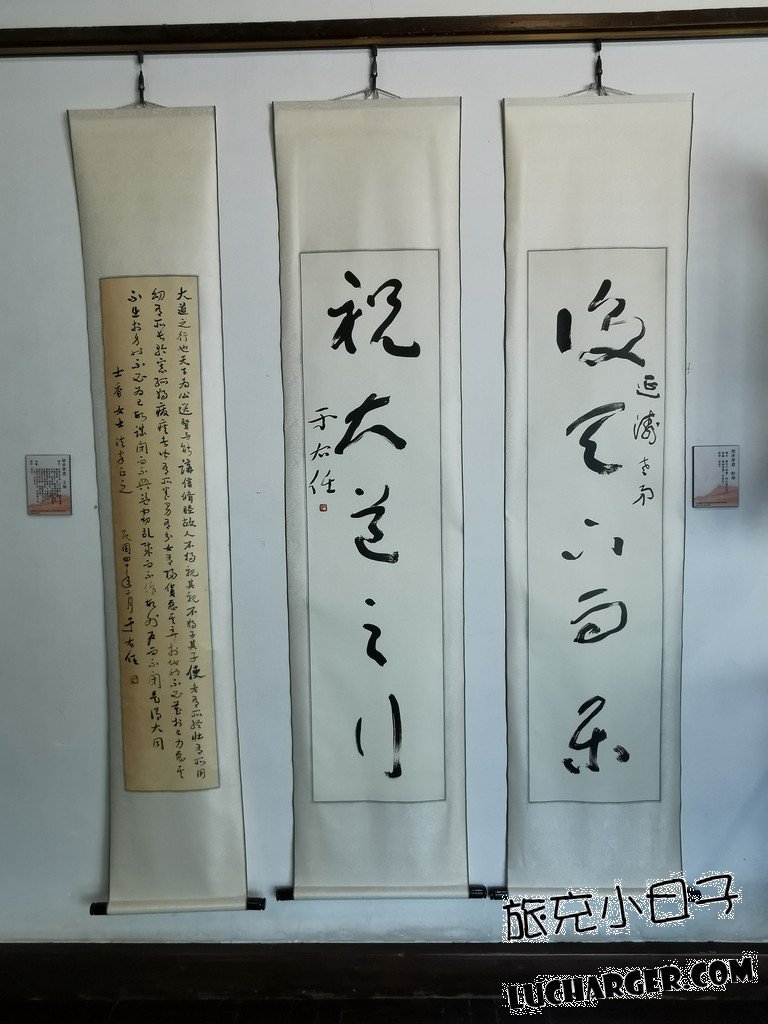 後天下而樂
延濤老弟
祝大道之行
于右任
大道之行也天下為公選賢與能講信修睦故人不獨親其親不獨子其子使老有所終壯有所用
幼有所長矜寡孤獨廢疾者皆有所養男有分女有歸貨惡其棄於地也不必藏於己力惡其
不出於身也不必為己故謀閉而不興盜竊亂賊而不作故外戶而不閉是謂大同
士香女士法家正之
民國四十年 月 于右任
旅充小日子
LUCHARGER.COM